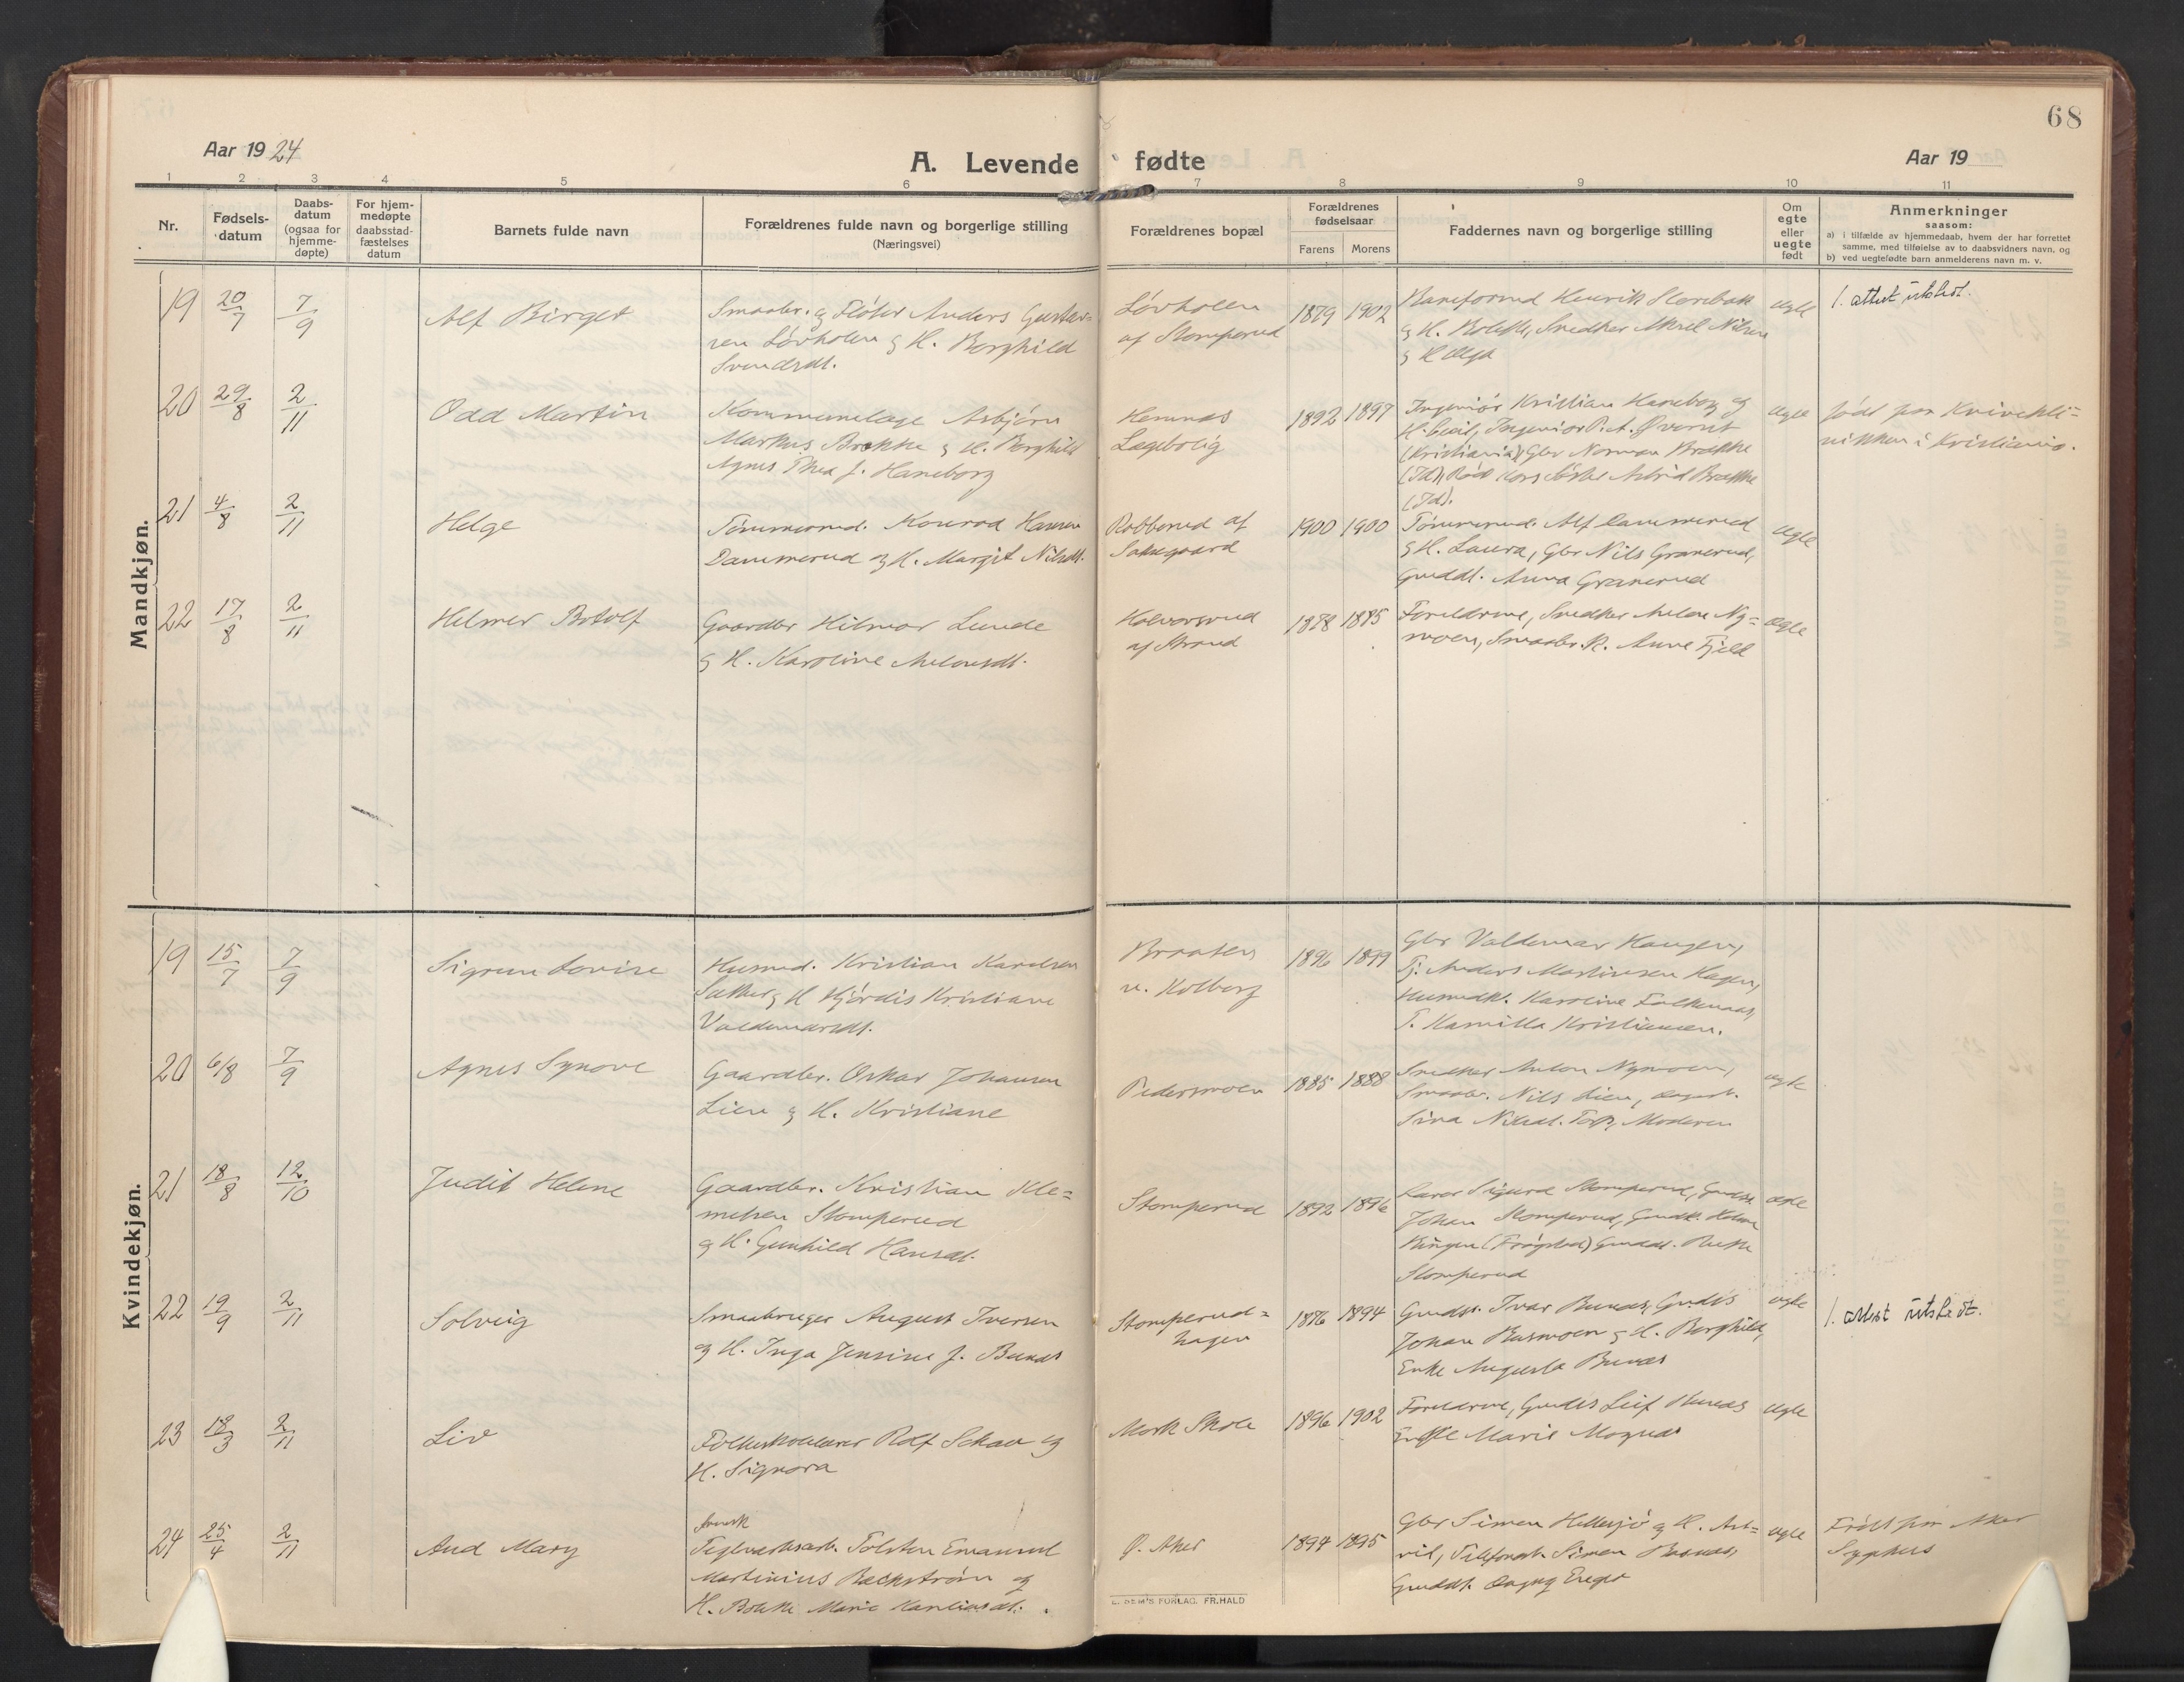 68
Aar 1924
A. Levende fødte
Aar 19
1 2 3 4 5 6 7 8 9 10 11
Nr.
Fødsels-
datum
Daabs-
datum
(ogsaa for
hjemme-
døpte)
For hjem-
medøpte
daabsstad-
fæstelses
datum
Barnets fulde navn
Forældrenes fulde navn og borgerlige stilling
(Næringsvei)
Forældrenes bopæl
Forældrenes
fødselsaar
Farens Morens
Faddernes navn og borgerlige stilling
Om
egte
eller
uegte
født
Anmerkninger
saasom:
a) i tilfælde av hjemmedaab, hvem der har forrettet
samme, med tilføielse av to daabsvidners navn, og
b) ved uegtefødte barn anmelderens navn m. v.
Mandkjøn.
19 20/7 7/9 Alf Birger
Smaabr. og Fløter Anders Gustav-
sen Løvholen & H. Borghild
Svendsdt.
Løvholen
af Stomperud
1879 1902
Henrik Storebak
& H. Bolette, Snedker Aksel Nilsen
& H Olga
egte
1. attest utstedt.
20 29/8 2/11 Odd Martin
Kommunelæge Asbjørn
Markus Brække & H. Borghild
Agnes Thea f. Haneborg
Hemnes
Lægebolig
1892 1897
Ingeniør Kristian Haneborg og
H. Cecil, Ingeniør P. A. Øverst
(Kristiania), Gbr Norman Brække
(Id), Rød Kors søster Astrid Brække
(Id).
egte
født paa Kvinekli-
nikken i Kristiania.
21 4/8 2/11 Helge
Tømmermd. Konrad Hansen
Dammerud og H. Margit Nilsdt.
Robberud af
Sakegaard
1900 1900
Tømmermd. Alf Dammerud
& H. Laura, Gbr Nils Granerud,
Gmddt. Anna Granerud
egte
22 17/8 2/11 Helmer Botolf
Gaardbr Hilmar Lunde
& H. Karoline Antonsdt.
Halvorsrud
af Strand
1878 1885
Foreldrene, Snedker Anton Ny-
moen, Smaabr. K. Anne Fjeld
egte
Kvindekjøn.
19 15/7 7/9 Sigrun Lovise
Husmd. Kristian Karelsen
Sæther & H Hjørdis Kristiane
Valdemarsdt.
Braaten
u. Kolberg
1896 1899
Gbr Valdemar Haugen,
Tj. Anders Martinsen Hagen,
Husmdk. Karoline Falkenaas,
T. Kamilla Kristiansen.
20 6/8 7/9 Agnes Synøve
Gaardbr. Oskar Johansen
Lien & H. Kristiane
Pedersmoen
1885 1888
Snedker Anton Nymoen,
Smaabr. Nils Lien,
Sina Nilsdt. Moderen
egte
21 18/8 12/10 Judit Helene
Gaardbr. Kristian Kle-
metsen Stomperud
og H. Gunhild Hansdt.
Stomperud
1892 1896
Lærer Sigurd Stomperud, Gmdss.
Johan Stomperud, Gmdk. Helene
Ringen (Trøgstad) Gmddt.
Stomperud
egte
22 19/9 2/11 Solveig
Smaabruger August Iversen
og H. Inga Jensine f. Bunæs
Stomperud-
hagen
1876 1894
Gmdss. Ivar Bunæs, Gmds
Johan Busmoen & H. Borghild,
Enke Augusta Bunæs
egte
1. attest utstedt.
23 18/3 2/11 Liv
Folkeskolelærer Rolf Schau og
H. Signora
Mork Skole
1896 1902
Foreldrene, Gmdss Leif Bunæs
Enke Marie Mognæs
egte
24 25/4 2/11 Aud Mary
svensk
Teglverksarb. Tolsten Emanuel
Martinius Backstrøm og
H. Bolette Marie Karliusdt.
Ø. Aker
1894 1895
Gbr Simen Hellesjø & H. Ast-
rid, Telefonarb. Simen Bosnæs,
Gmddt.
egte
Født paa Aker
Sygehus
E. SEM'S FORLAG, FR.HALD